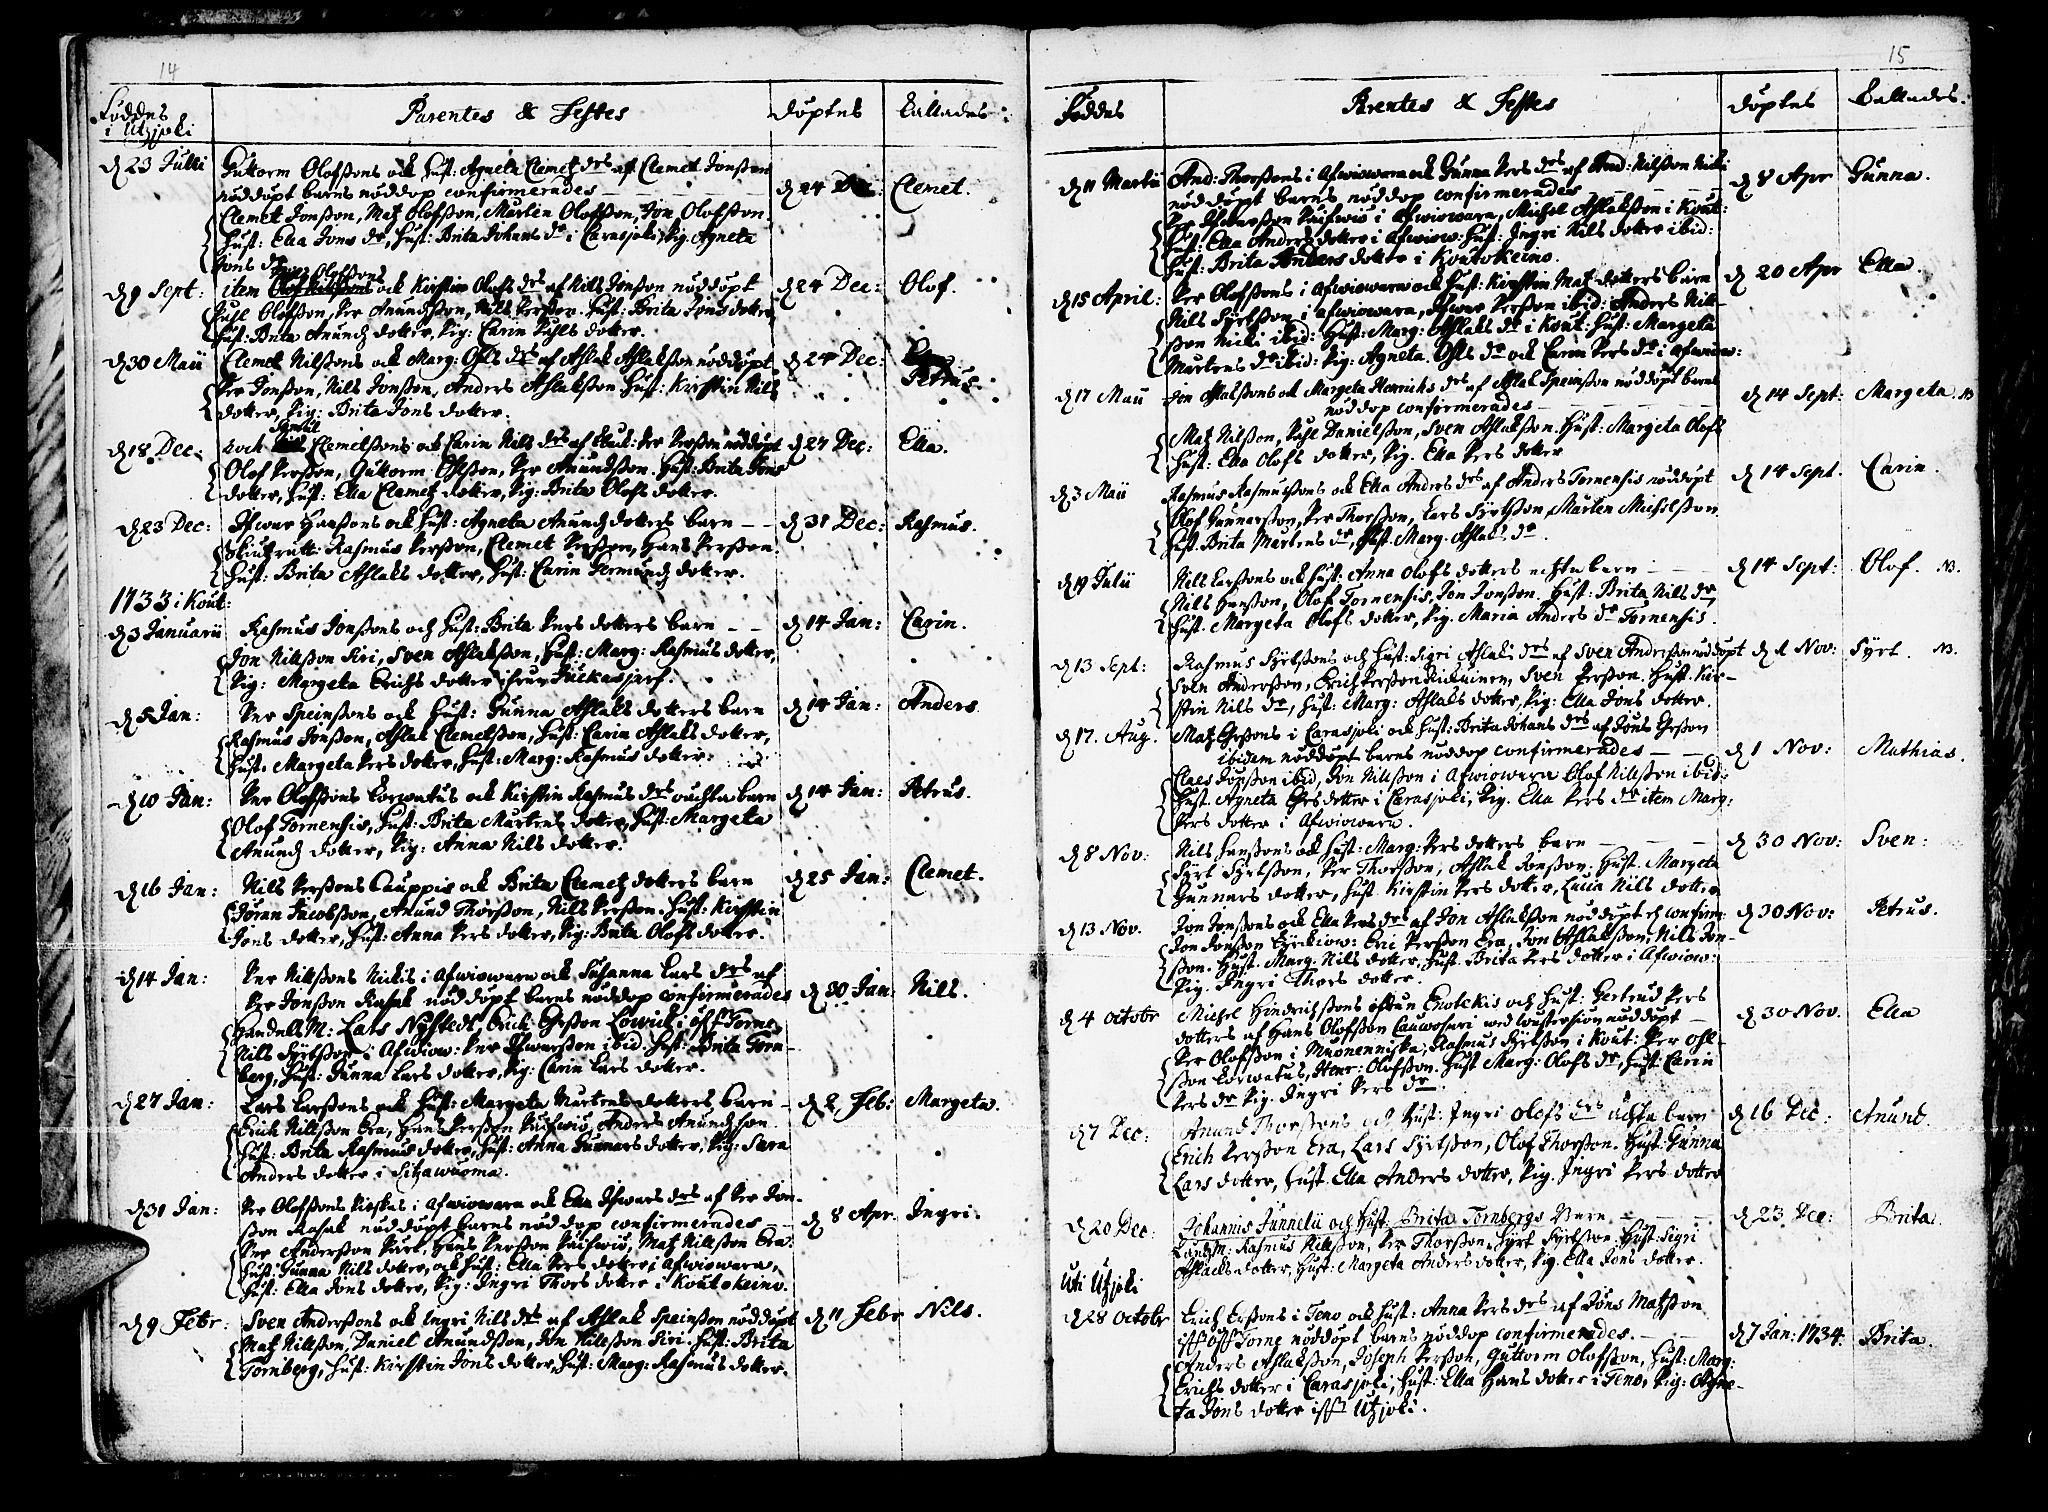 14
Föddes i Utzjoki
Parentes & Testes
döptes
Kallades:
d 23 Julii
Guttorm Olofssons och Hust: Agneta Clemetz drs af Clemet Jonsson
nöddöpt barns nöddop confirmerades
d 24 Dec:
Clemet.
Clemet Jonsson, Matz Olofsson, Mårten Olofsson, Jon Olofsson.
Hust: Ella Jons dr, Hust: Brita Johans dr i Carasjoki, Pig. Agneta
Jons dr
Olofssons
d 9 Sept:
item och Kirstin Olofs drs af Nils Jonsson nöddöpt
d 24 Dec:
Olof.
Påhl Olofsson, Per Anundsson, Nils Persson. Hust: Brita Jons dotter,
Hust: Brita Anundz dotter, Pig: Carin Påhls dotter.
d 30 Maii
Clemet Nilssons och Marg: Ofls drs af Aslak Aslaksson nöddöpt
d 24 Dec:
Petrus
Per Jonsson, Nils Jonsson, Anders Aslaksson Hust: Kirstin Nils
dotter, Pig: Brita Jons dotter.
d 18 Dec:
Clemetssons och Carin Nils drs af Per Persson nöddöpt
d 27 Dec:
Ella.
Olof Persson, Guttorm Ohlsson, Per Anundsson. Hust: Brita Jons
dotter, Hust: Ella Clemetz dotter, Pig: Brita Olofs dotter.
d 23 Dec:
Ifwar Hanssons och Hust: Agneta Anundz dotters barn
d 31 Dec:
Rasmus.
Skiutzrätt: Rasmus Persson, Clemet Persson, Hans Persson.
Hust: Brita Aslaks dotter, Hust: Carin Jermundz dotter.
1733 i Kout:
d 3 Januarii
Rasmus Jonssons och Hust: Brita Pers dotters barn
d 14 Jan:
Carin.
Jon Nilsson Siri, Sven Aslaksson, Hust: Marg: Rasmus dotter,
Pig: Margeta Erichs dotter ifrån Juckasjerf.
d 5 Jan:
Per Speinssons och Hust: Gunna Aslaks dotters barn
d 14 Jan:
Anders.
Rasmus Jonsson, Aslak Clemetsson, Hust: Carin Aslaks dotter,
Hust: Margeta Pers dotter, Hust: Marg: Rasmus dotter.
d 10 Jan:
Per Olofssons Corwatus och Kirstin Rasmus drs ouchta barn
d 14 Jan:
Petrus.
Olof Tornensis, Hust: Brita Mårtens dotter, Hust: Margeta
Anundz dotter, Pig: Anna Nils dotter.
d 16 Jan:
Nils Perssons Cauppis och Brita Clemetz dotters barn
d 25 Jan:
Clemet.
Jöran Jacobsson, Anund Thorsson, Nils Persson. Hust: Kirstin
Jons dotter, Hust: Anna Pers dotter, Pig: Brita Olofs dotter.
d 14 Jan:
Per Nilssons Nickis i Afwiowara och Susanna Lars drs af
Per Jonsson Rasak nöddöpt barns nöddop confirmerades
d 30 Jan:
Nils.
Handells M: Lars Nystedt, Erich Ersson Lowick: Torne
Nils Syrtsson i Afwiow: Per Ifwarsson ibid. Hust: Brita Torn-
berg, Hust: Gunna Lars dotter, Pig: Carin Lars dotter.
d 27 Jan:
Lars Larssons och Hust: Margeta Mårtens dotters barn
d 2 Feb:
Margeta.
Erich Nilsson Era, Hans Persson Päifwiö, Anders Anundsson
Hust: Brita Rasmus dotter, Hust: Anna Gunnars dotter, Pig: Sara
Anders dotter i Sitzawuoma.
d 31 Jan:
Per Olofssons Kioskis i Afwiowara och Ella Ifwars drs af Per Jon-
sson Rasak nöddöpt barns nöddop confirmerades
d 8 Apr.
Ingri.
Per Andersson Pärt, Hans Persson Päifwiö, Matz Nilsson Era.
Hust: Gunna Nils dotter, och Hust: Ella Pers dotter i Afwiowara,
Hust: Ella Jons dotter, Pig: Ingri Thors dotter i Koutokeino.
d 9 Febr:
Sven Anderssons och Ingri Nils drs af Aslak Speinsson nöddöpt
d 11 Febr
Nils.
Matz Nilsson, Daniel Anundsson, Jon Nilsson Siri. Hust: Brita
Tornberg, Hust: Kirstin Jons dotter, Hust: Marg: Rasmus dotter.
15
Föddes
Parentes & Testes
döptes
Kallades.
d 11 Martii
And: Thorssons i Afwiowara och Gunna Pers drs af And: Nilsson Nicki
nöddöpt barns nöddop confirmerades
d 8 Apr
Gunna.
Per Ifwarsson Päifwiö i Afwiowara, Michel Aslaksson i Kout:
Hust: Ella Anders dotter i Afwiow: Hust: Ingri Nils dotter ibid:
Hust: Brita Anders dotter i Koutokeino.
d 15 April:
Per Olofssons i Afwiowara och Hust: Kirstin Matz dotters barn
d 20 Apr
Ella.
Nils Syrtsson i Afwiowara, Ifwar Persson ibid: Anders Nils-
sson Nicki ibid: Hust: Marg: Aslaks dr i Kout: Hust: Margeta
Mårtens dr ibid: Pig: Agneta Ohls dr och Carin Pers dr i Afwiow:
d 17 Maii
Jon Aslakssons och Margeta Henrichs drs af Aslak Speinsson nöddöpt barns
nöddop confirmerades
d 14 Sept:
Margeta. N
Matz Nilsson, Påhl Danielsson, Sven Aslaksson. Hust: Margeta Olofs
Hust: Ella Olofs dotter, Pig. Ella Pers dotter
d 3 Maii
Rasmus Rasmussons och Ella Anders drs af Anders Tornensis nöddöpt
d 14 Sept.
Carin.
Olof Gunnarsson, Per Thorsson, Lars Syrtsson, Mårten Michelsson
Hust. Brita Mårtens dr, Hust. Marg. Aslaks dr.
d 19 Julii
Nils Larssons och Hust: Anna Olofs dotters echta barn
d 14 Sept:
Olof. N.
Nils Hansson, Olof Tornensis, Jon Jonsson. Hust: Brita Nils dr,
Hust. Margeta Olofs dotter, Pig. Maria Anders dr Tornensis.
d 13 Sept:
Rasmus Syrtssons och Hust: Sigri Aslaks drs af Sven Andersson nöddöpt
d 1 Nov:
Syrt. N.
Sven Andersson, Erich Persson Kukuinen, Sven Persson. Hust. Kir-
stin Nils dr, Hust: Marg: Aslaks dotter, Pig: Ella Jons dotter.
d 17. Aug.
Matz Erssons i Carasjoki och Hust: Brita Johans drs af Jöns Ersson
ibidem nöddöpt barns nöddop confirmerades
d 1 Nov:
Mathias.
Claes Jonsson ibid, Jon Nilsson i Afwiowara Olof Nilsson ibid:
Hust. Agneta Ers dotter i Carasjoki, Pig. Ella Pers dr item Marg:
Pers dotter i Afwiowara.
d 8 Nov:
Nils Hanssons och Hust: Marg: Pers dotters barn
d 30 Nov:
Sven:
Syrt Syrtsson, Per Thorsson, Aslak Jonsson. Hust. Margeta
Gunnars dotter, Hust Kirstin Pers dotter, Lucia Nils dotter.
d 13 Nov.
Jon Jonssons och Ella Pers drs af Jon Aslaksson nöddöpt ch confirm:
d 30 Nov:
Petrus.
Jon Jonsson Erickiow: Eric Persson Era, Jon Aslaksson, Nils Jon-
sson. Hust. Marg. Nils dotter, Hust. Brita Pers dotter i Afwiow:
Pig. Ingri Thors dotter.
d 4 Octobr
Michel Hindrichssons ifrån Enotekis och Hust: Gertrud Pers
dotters af Hans Olofsson Cauwosari nöddöpt
d 30 Nov.
Ella
Per Olofsson i Muonenniska, Rasmus Syrtsson i Kout: Per Ohl-
sson Corwatus, Henr: Olofsson. Hust Marg: Olofs dr, Hust Carin
Pers dr Pig. Ingri Pers dr.
d 7 Dec:
Anund Thorssons och Hust: Ingri Olofs drs ächta barn
d 16 Dec:
Anund.
Erich Persson Era, Lars Syrtsson, Olof Thorsson. Hust: Gunna
Lars dotter, Hust. Ella Anders dotter, Pig. Ingri Pers dotter
d 20 Dec:
Johannis Junnelii och Hust: Brita Tornbergs Barn
d 23 Dec:
Brita.
Landz M: Rasmus Nilsson, Per Thorsson, Syrt Syrtsson. Hust: Sigri
Aslacks dotter, Hust: Margeta Anders dotter, Pig. Ella Jons dotter.
Uti Utzjoki
d 28 Octobr
Erich Erssons i Teno och Hust: Anna Pers drs af Jöns Matsson
Torne nöddöpt barns nöddop confirmerades.
d 7 Jan: 1734.
Brita.
Anders Aslaksson, Joseph Persson, Guttorm Olofsson, Hust: Marg:
Erichs dotter i Carasjoki, Hust: Ella Hans dotter i Teno, Pig: Agne-
ta Jons dotter Utzjoki.